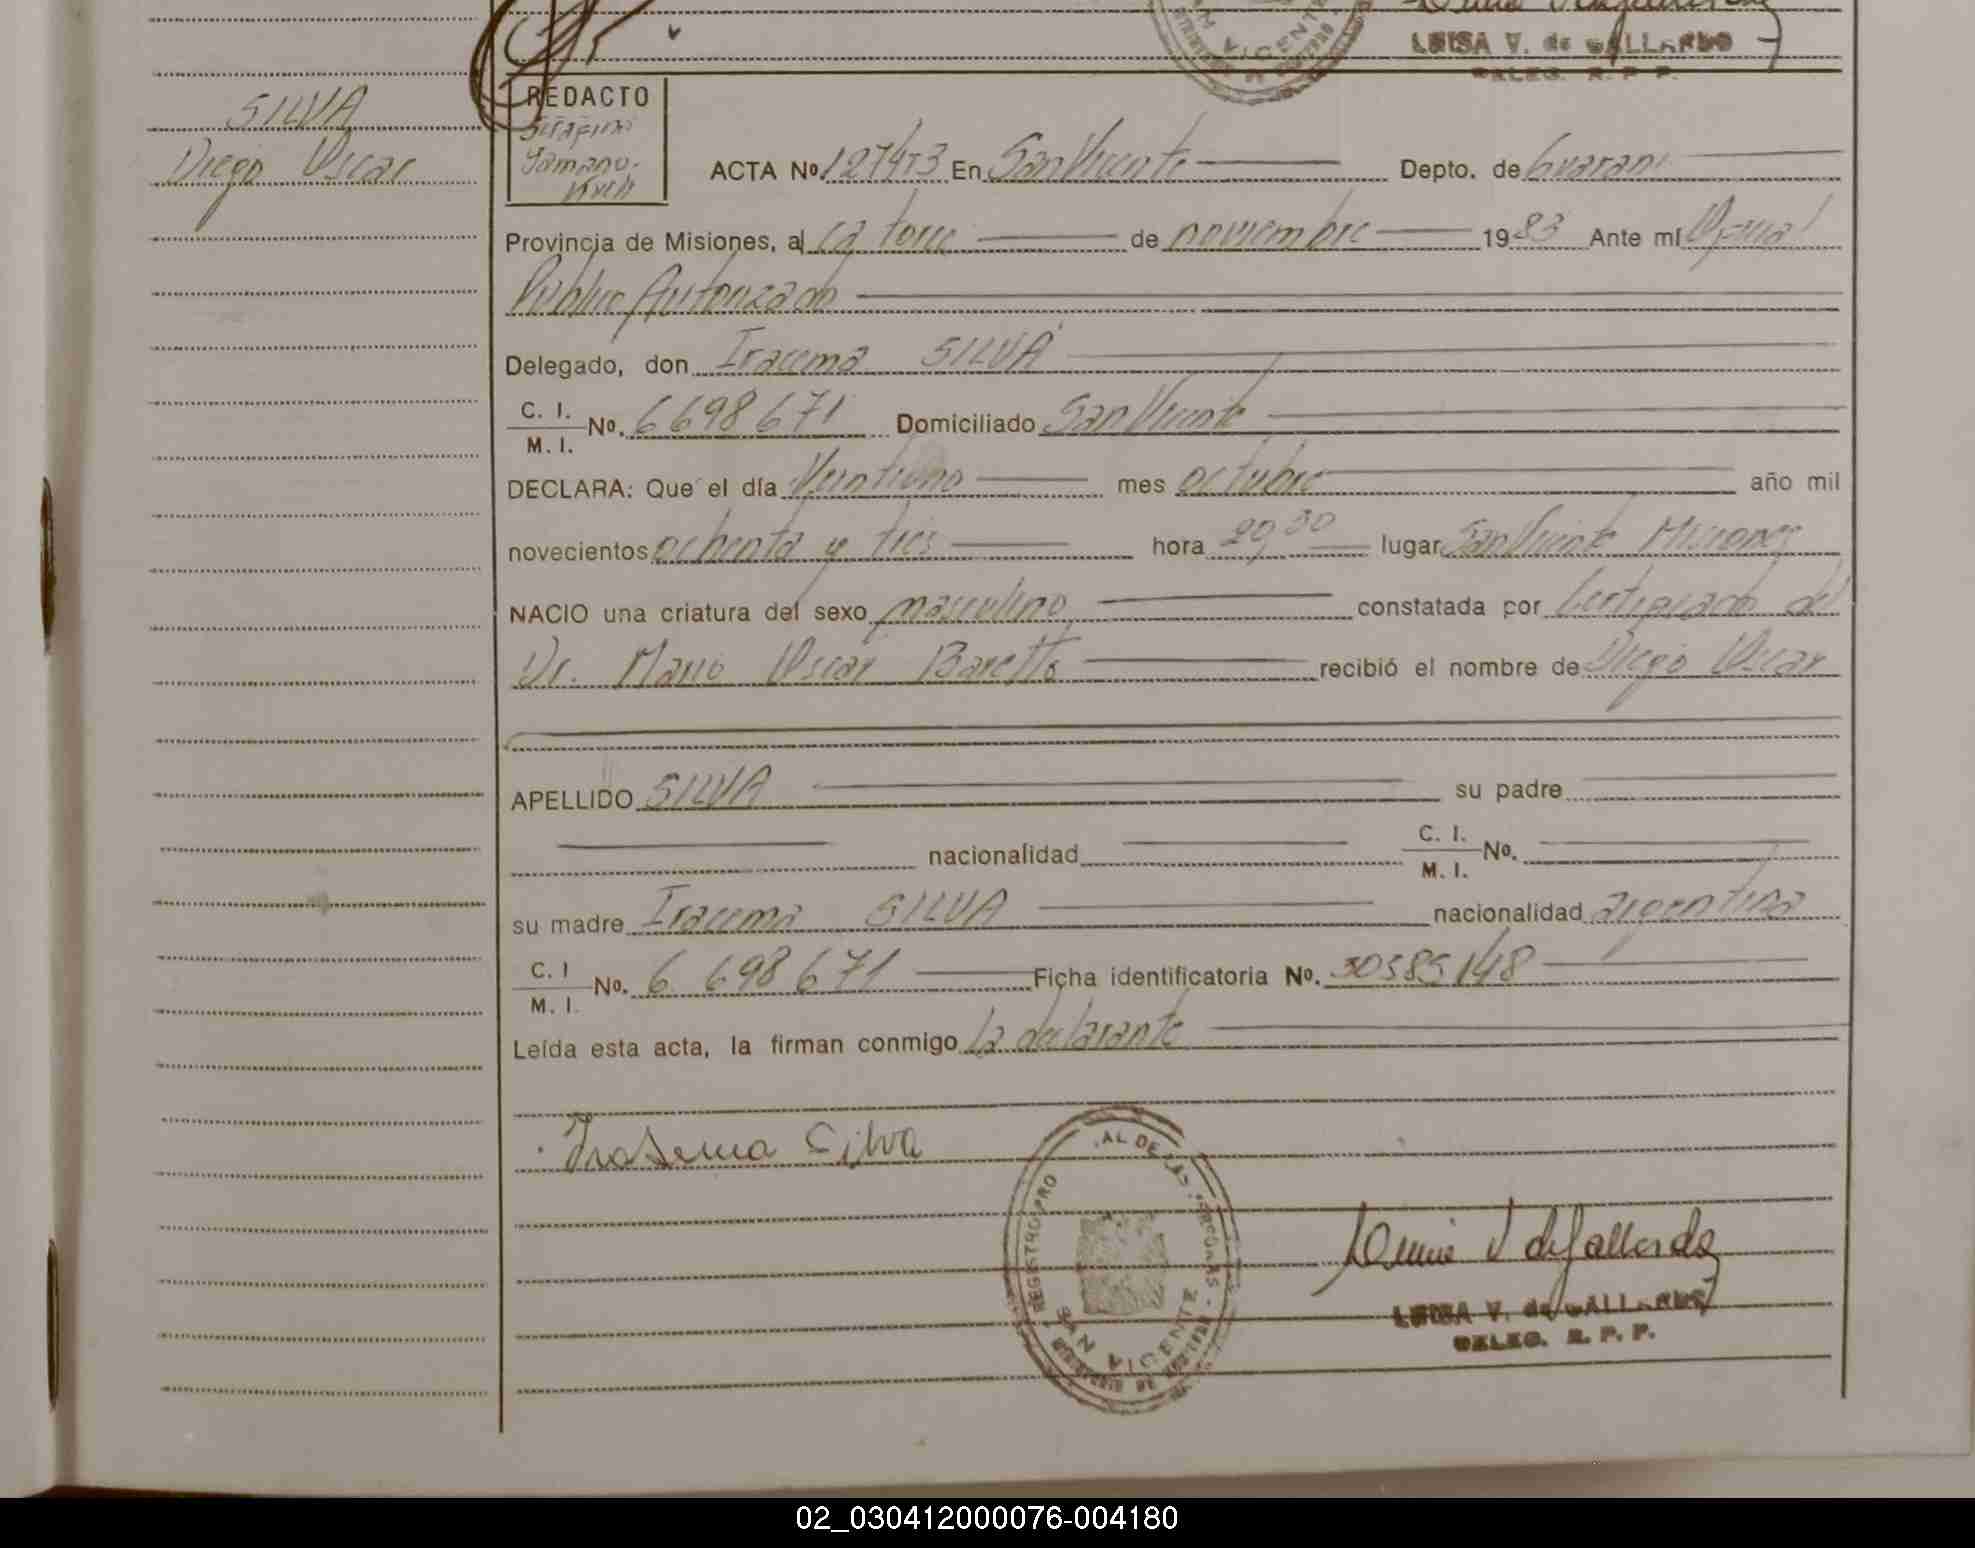 LUISA V. de GALLARDO
DELEG. R. P. P.
SAN VICENTE
SILVA
Diego Oscar
REDACTO
ACTA Nº En San Vicente Depto. de Guarani
Provincia de Misiones, al catorce de noviembre 1983 Ante mí Oficial
Público Autorizado
Delegado, don Iracema SILVA
C. I. / M. I. Nº. 6698671 Domiciliado San Vicente
DECLARA: Que el día Veintiuno mes octubre año mil
novecientos ochenta y tres hora 20,30 lugar San Vicente Misiones
NACIO una criatura del sexo masculino constatada por Certificado del
Dr. Mario Oscar Baretto recibió el nombre de Diego Oscar
APELLIDO SILVA su padre
nacionalidad C. I. / M. I. Nº.
su madre Iracema SILVA nacionalidad argentina
C. I / M. I. Nº. 6.698671 Ficha identificatoria Nº. 30585148
Leída esta acta, la firman conmigo la declarante
Irasema Silva
REGISTRO PRO AL DE LAS PERSONAS
SAN VICENTE
Luisa V de Gallardo
LUISA V. de GALLARDO
DELEG. R. P. P.
02_030412000076-004180